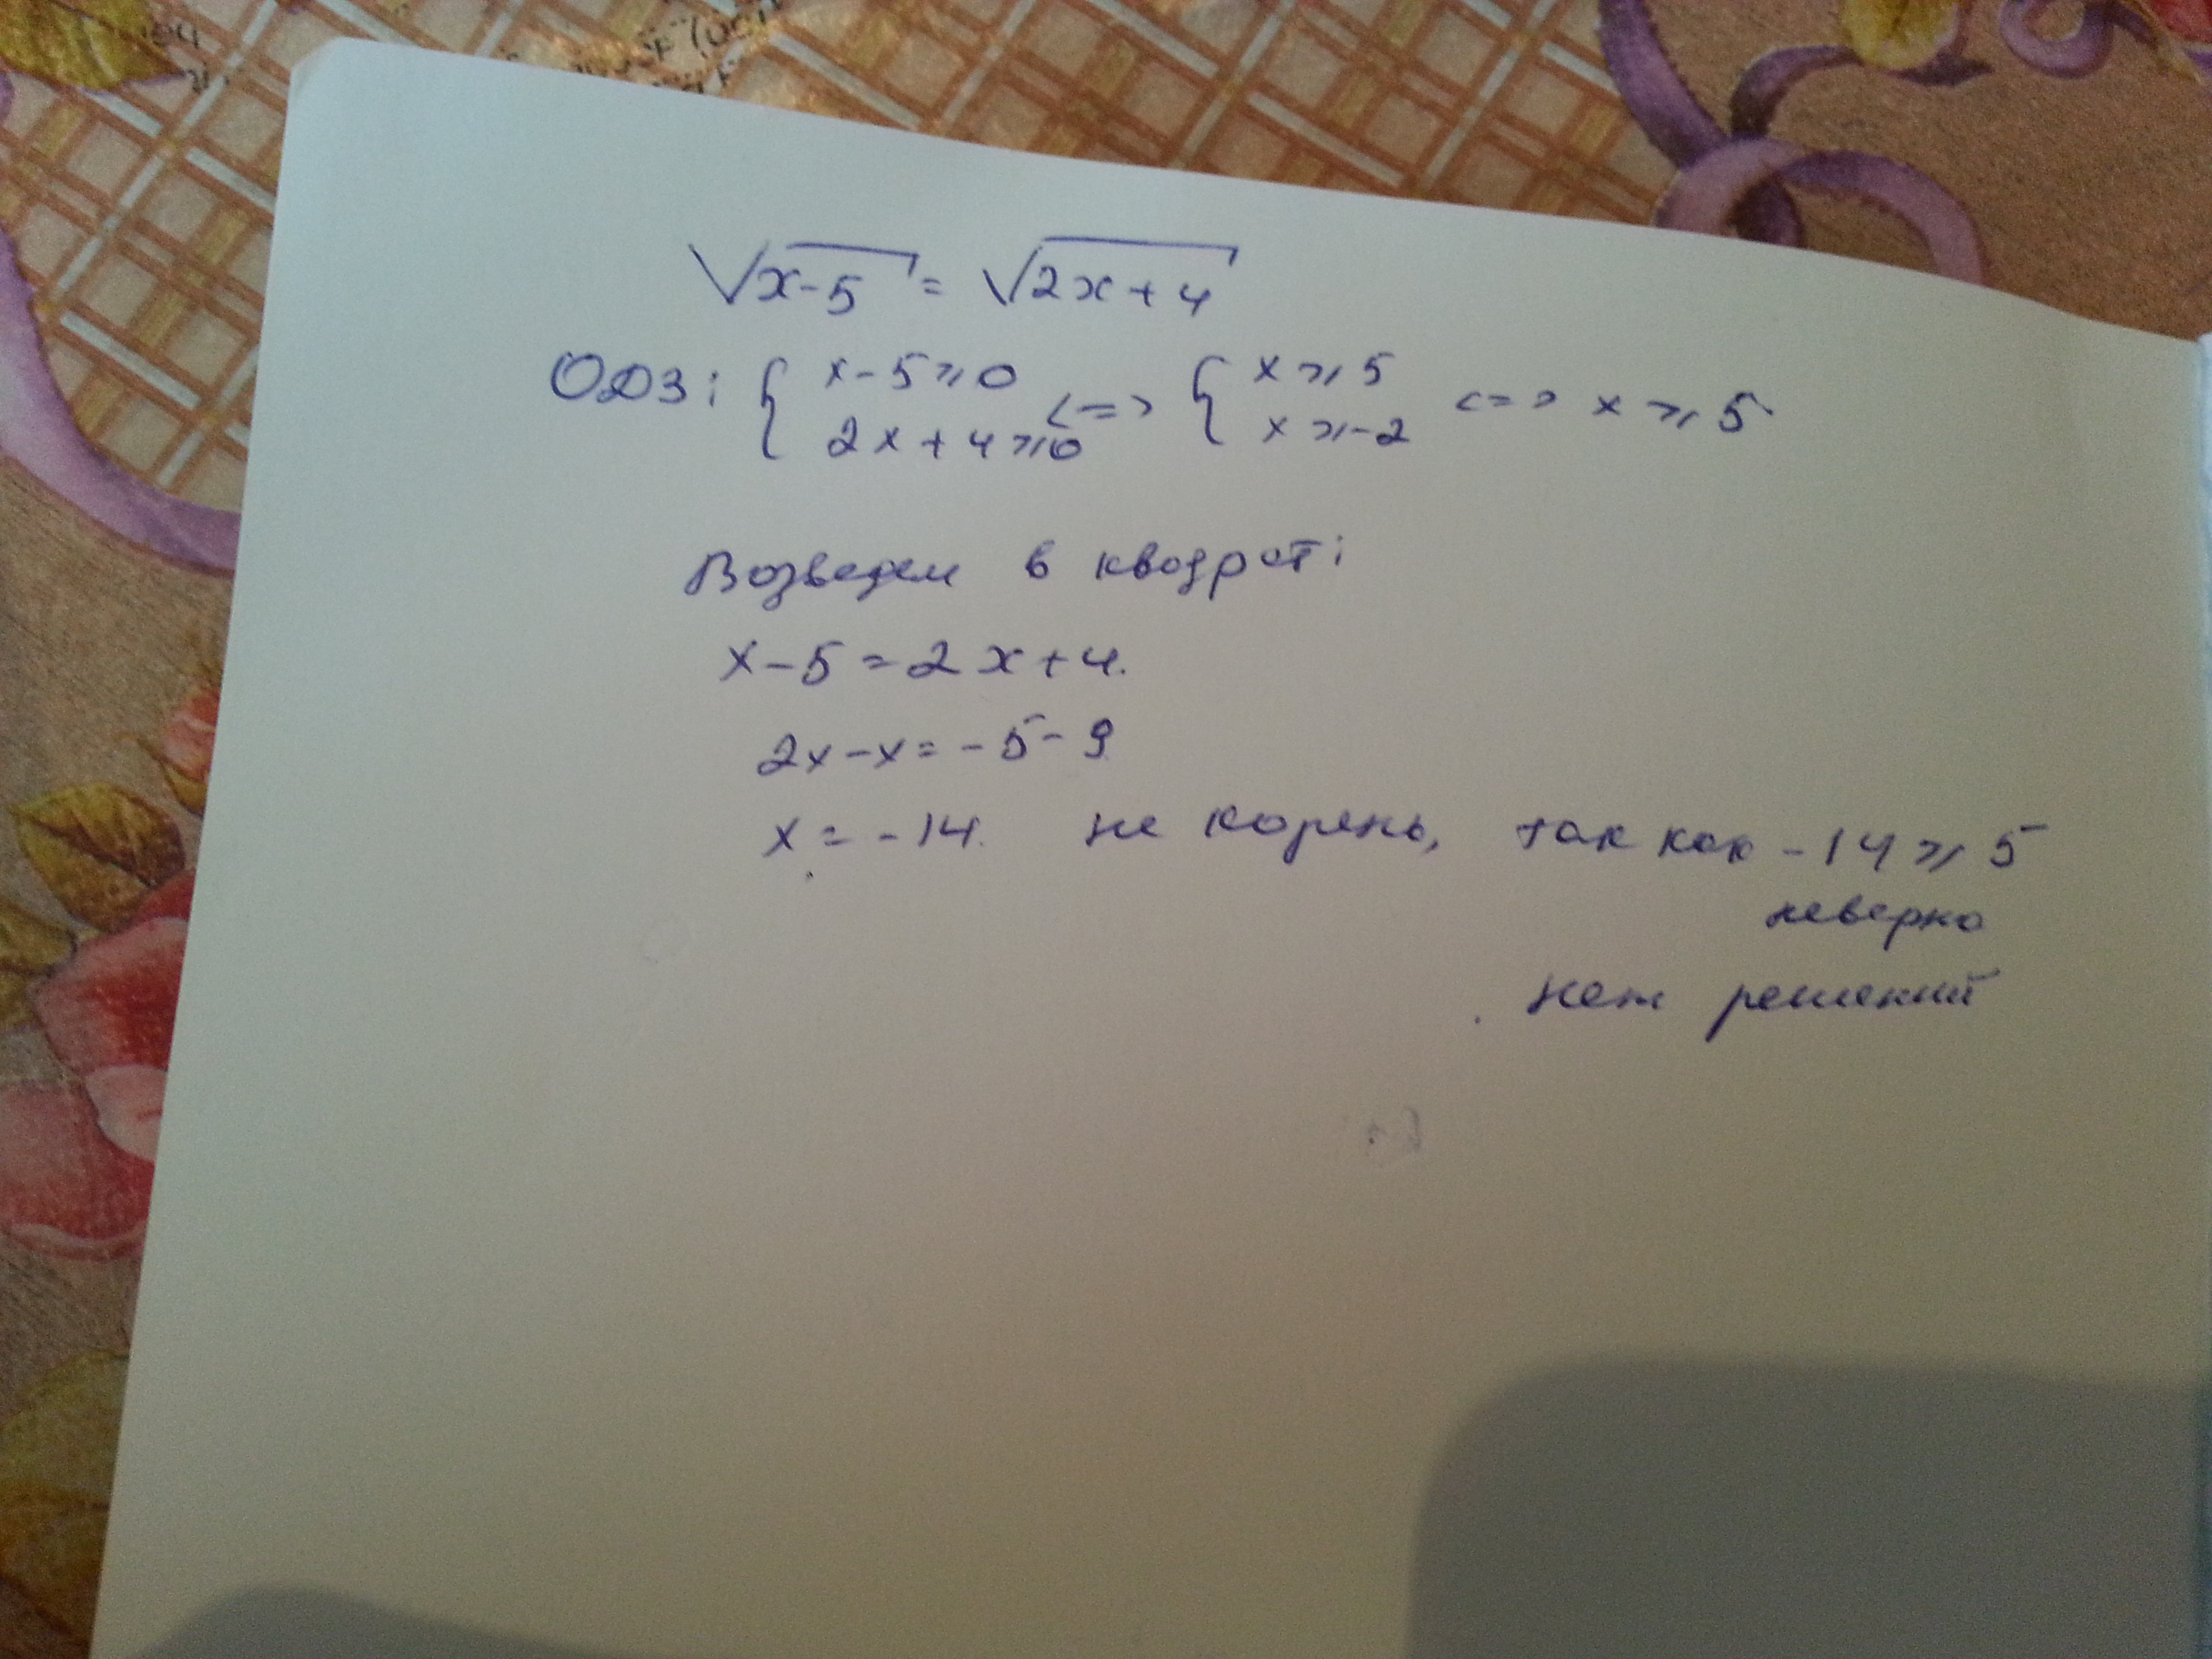 √x-5 = √2x+4
ОДЗ: { x-5⩾0 <=> { x⩾5 <=> x⩾5
2x+4⩾0 x⩾-2
Возведем в квадрат:
x-5=2x+4.
2x-x=-5-9
x=-14. не корень, так как -14⩾5
неверно
нет решений